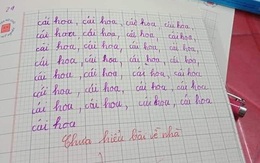 cái hoa, cái hoa, cái hoa, cái hoa,
cái hoa, cái hoa, cái hoa, cái hoa,
cái hoa, cái hoa, cái hoa, cái hoa,
cái hoa, cái hoa, cái hoa, cái hoa,
cái hoa, cái hoa, cái hoa, cái hoa,
cái hoa, cái hoa, cái hoa, cái hoa,
cái hoa, cái hoa, cái hoa, cái hoa
cái hoa
Chưa hiểu bài về nhà